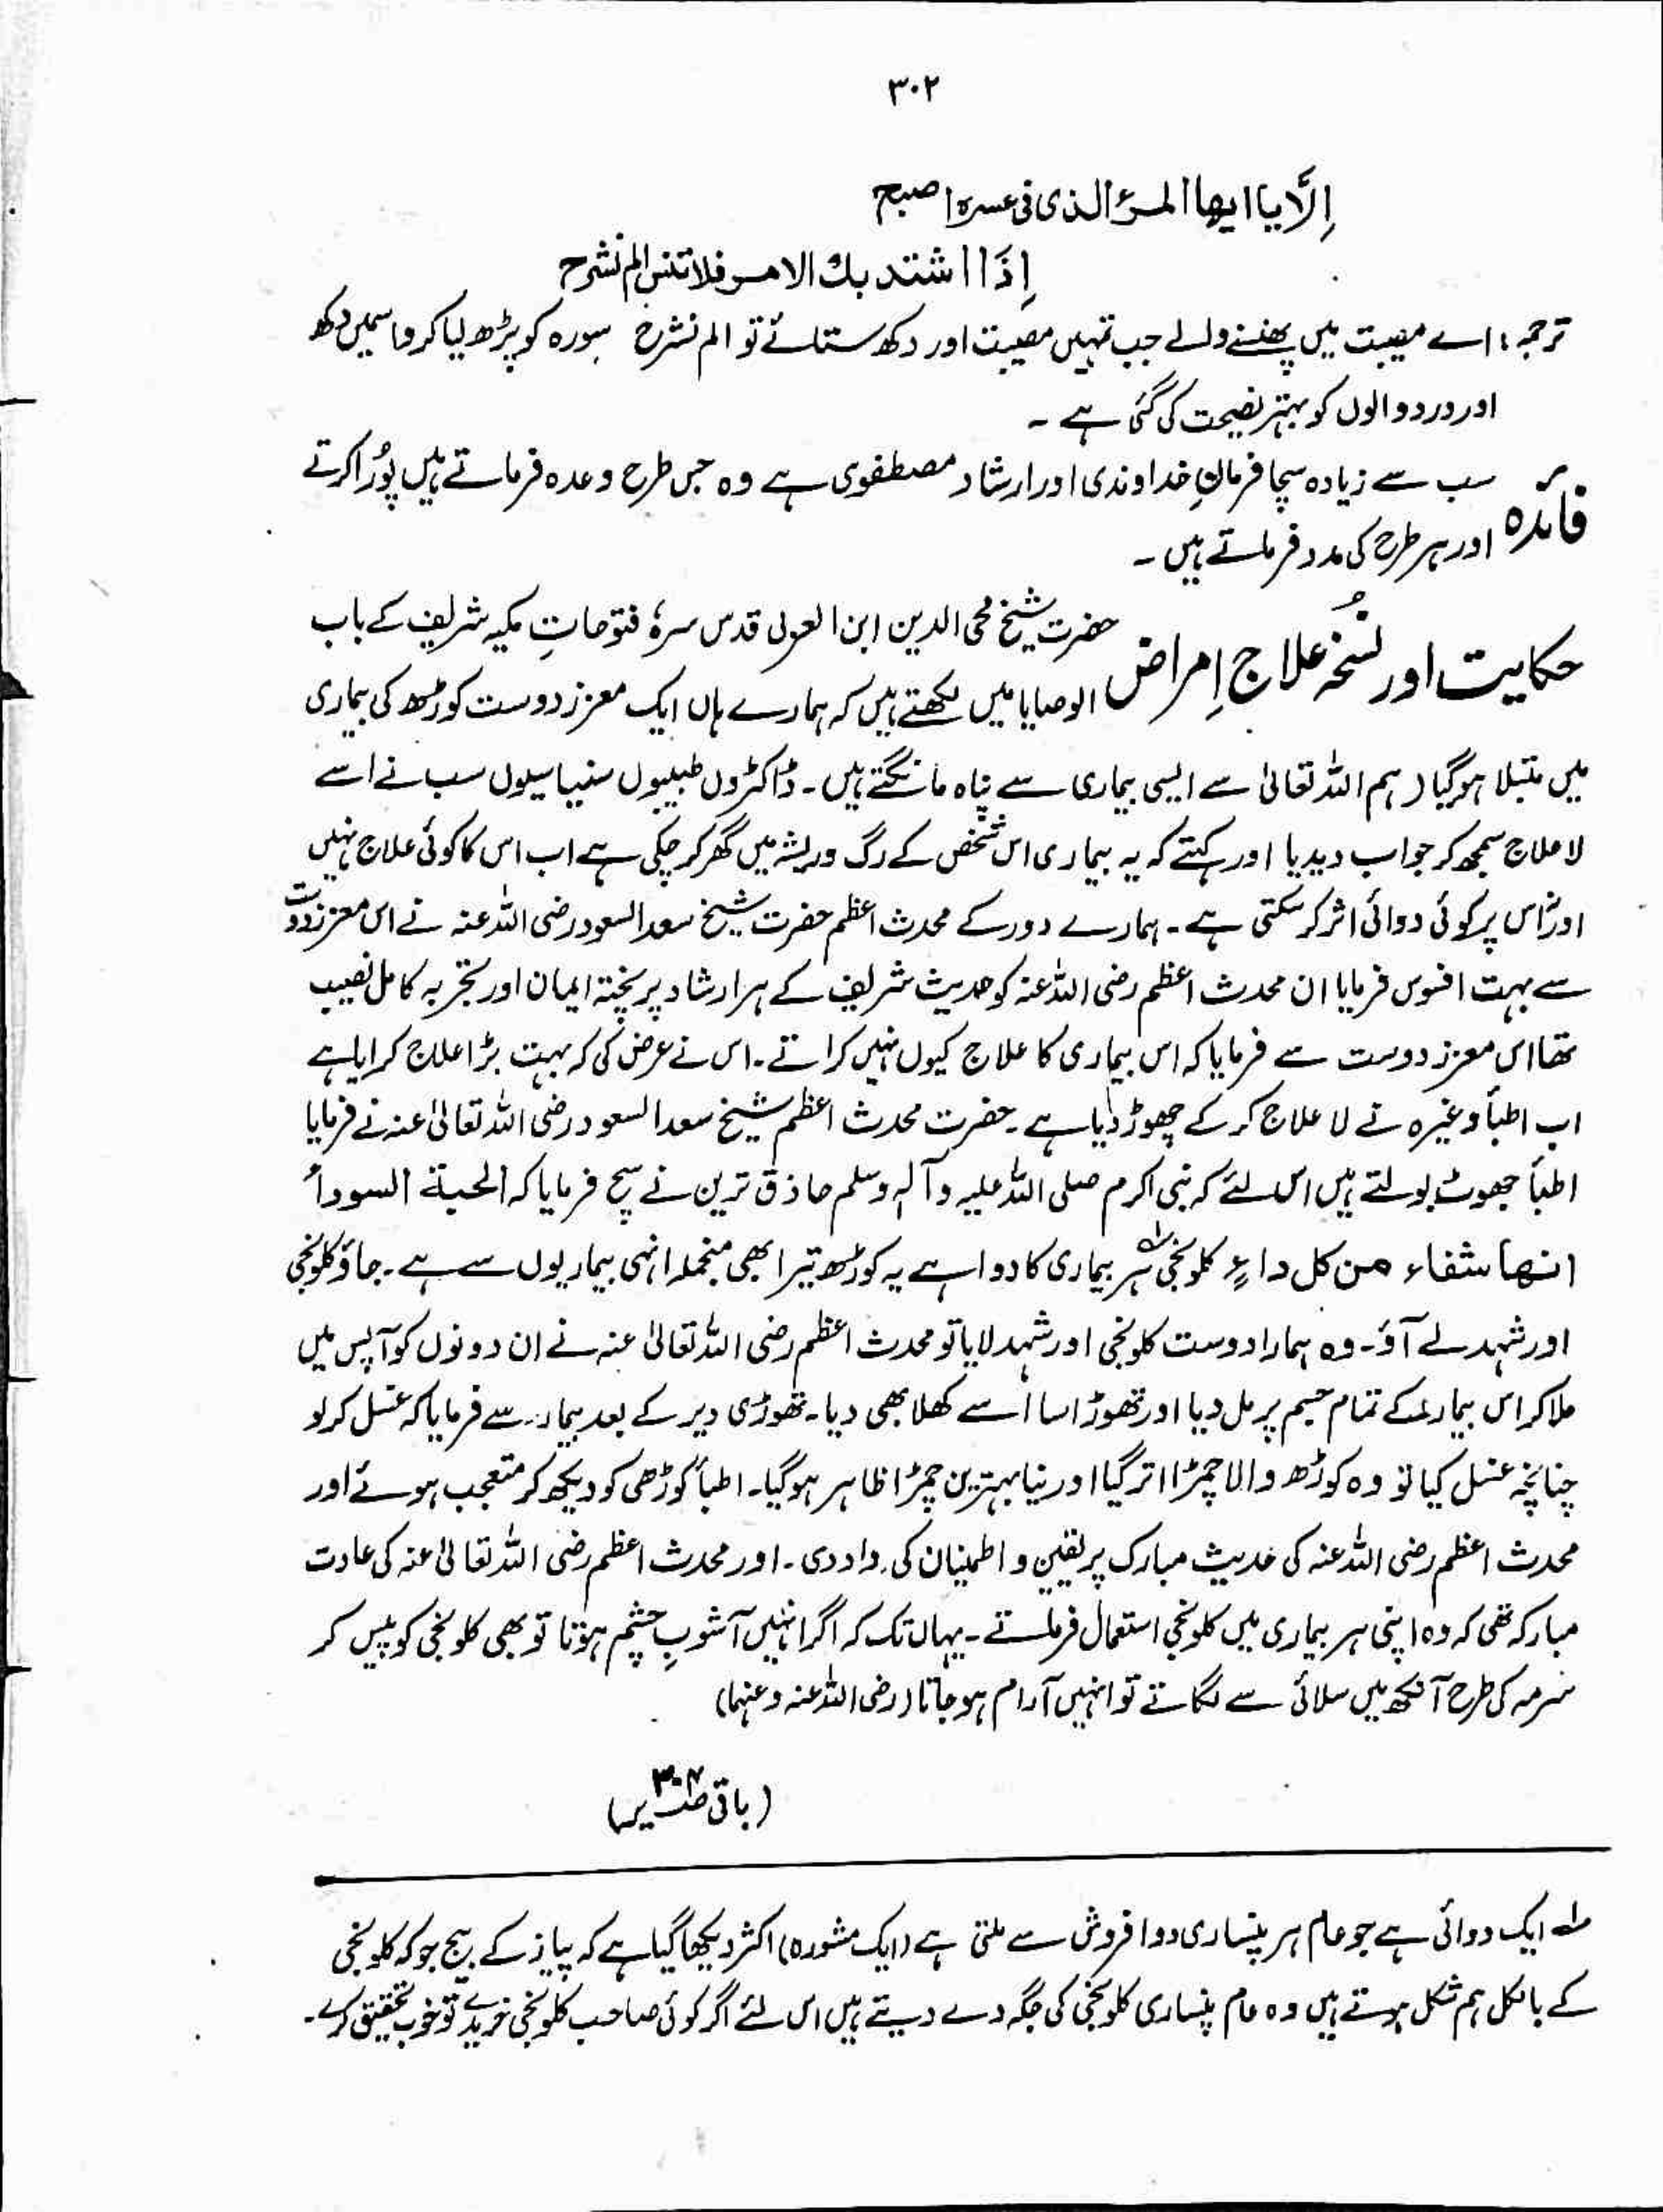 ۳۰۲
اِلَّا یا ایھا المرء الذی فی عسرہ اصبح
اِذَا اشتد بك الامر فلا تنس الم نشرح
ترجمہ: اے مصیبت میں پھنسنے والے جب تمہیں مصیبت اور دکھ ستائے تو الم نشرح سورہ کو پڑھ لیا کرو اسمیں دکھ
اور درد والوں کو بہتر نصیحت کی گئی ہے ۔
فائدہ سب سے زیادہ سچا فرمانِ خداوندی اور ارشاد مصطفوی ہے وہ جس طرح وعدہ فرماتے ہیں پُورا کرتے
اور ہر طرح کی مدد فرماتے ہیں ۔
حکایت اور نُسخہ علاج اِمراض حضرت شیخ محی الدین ابن العربی قدس سرہٗ فتوحاتِ مکیہ شریف کے باب
الوصایا میں لکھتے ہیں کہ ہمارے ہاں ایک معزز دوست کوڑھ کی بیماری
میں مبتلا ہوگیا (ہم اللہ تعالیٰ سے ایسی بیماری سے پناہ مانگتے ہیں ۔ ڈاکٹروں طبیبوں سنیاسیوں سب نے اسے
لاعلاج سمجھ کر جواب دیدیا اور کہتے کہ یہ بیماری اس شخص کے رگ وریشہ میں گھر کر چکی ہے اب اس کا کوئی علاج نہیں
اور نہ اس پر کوئی دوائی اثر کر سکتی ہے ۔ ہمارے دور کے محدث اعظم حضرت شیخ سعد السعود رضی اللہ عنہ نے اس معزز دوست
سے بہت افسوس فرمایا ان محدث اعظم رضی اللہ عنہ کو حدیث شریف کے ہر ارشاد پر پختہ ایمان اور تجربہ کامل نصیب
تھا اس معزز دوست سے فرمایا کہ اس بیماری کا علاج کیوں نہیں کراتے ۔ اس نے عرض کی کہ بہت بڑا علاج کرایا ہے
اب اطبأ وغیرہ نے لا علاج کر کے چھوڑ دیا ہے ۔ حضرت محدث اعظم شیخ سعد السعود رضی اللہ تعالیٰ عنہ نے فرمایا
اطبأ جھوٹ بولتے ہیں اس لئے کہ نبی اکرم صلی اللہ علیہ وآلہٖ وسلم حاذق ترین نے سچ فرمایا کہ الحبة السودأ
انھا شفاء من کل داءٍ کلونجی ؎۱ ہر بیماری کا دوا ہے یہ کوڑھ تیرا بھی منجملہ انہی بیماریوں سے ہے ۔ جاؤ کلونجی
اور شہد لے آؤ ۔ وہ ہمارا دوست کلونجی اور شہد لایا تو محدث اعظم رضی اللہ تعالیٰ عنہ نے ان دونوں کو آپس میں
ملا کر اس بیمار کے تمام جسم پر مل دیا اور تھوڑا سا اُسے کھلا بھی دیا ۔ تھوڑی دیر کے بعد بیمار سے فرمایا کہ غسل کر لو
چنانچہ غسل کیا تو وہ کوڑھ والا چمڑا اتر گیا اور نیا بہترین چمڑا ظاہر ہوگیا ۔ اطبأ کوڑھی کو دیکھ کر متعجب ہوئے اور
محدث اعظم رضی اللہ عنہ کی حدیث مبارک پر یقین و اطمینان کی داد دی ۔ اور محدث اعظم رضی اللہ تعالیٰ عنہ کی عادت
مبارکہ تھی کہ وہ اپنی ہر بیماری میں کلونجی استعمال فرماتے ۔ یہاں تک کہ اگر انہیں آشوبِ چشم ہوتا تو بھی کلونجی کو پیس کر
سرمہ کی طرح آنکھ میں سلائی سے لگاتے تو انہیں آرام ہوجاتا (رضی اللہ عنہ وعنہما)
(باقی صـ پر)
؎۱ ایک دوائی ہے جو عام ہر پنساری دوا فروش سے ملتی ہے (ایک مشورہ) اکثر دیکھا گیا ہے کہ پیاز کے بیج جو کہ کلونجی
کے بالکل ہم شکل ہوتے ہیں وہ عام پنساری کلونجی کی جگہ دے دیتے ہیں اس لئے اگر کوئی صاحب کلونجی خریدے تو خوب تحقیق کرے۔